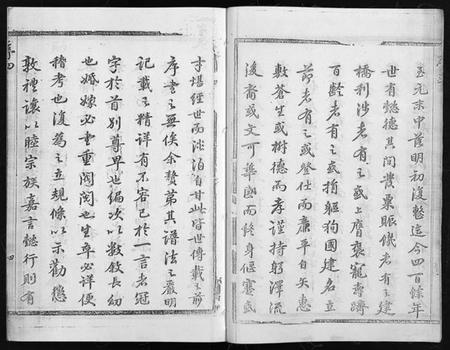 至元末中落明初復整迄今四百餘年
世有懿德其間發粟賑饑者有之建
橋利涉者有之或上膺褒寵壽躋
百齡者有之或捐軀狥國建名立
節者有之或登仕而廉平自矢惠
敷蒼生或樹德而孝謹持躬澤流
後裔或文可華國而終身偃蹇或
才堪經世而淡泊自甘此皆世傳載之前
序書之無俟余贅第其譜法之嚴明
記載之精詳有不容已於一言者冠
字於首別尊卑也編次以數敘長幼
也婚嫁必書重閥閱也生卒必詳便
稽考也復為之立規條以示勸懲
敦禮讓以睦宗族嘉言懿行則有
序四
四